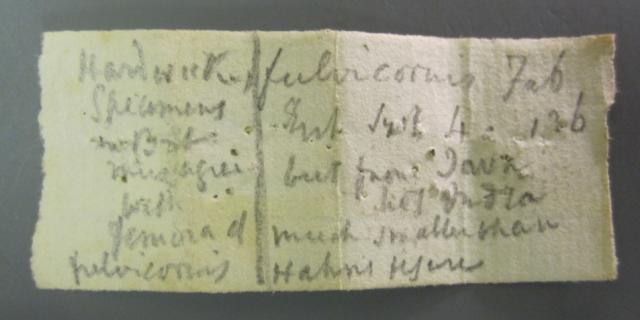 Hardwicke's
Specimens
in Brit
mus agree
with
femora of
fulvicornis
fulvicornis Fab
Ent Syst 4. 126
but from Java
not India
much smaller than
Hahns figure